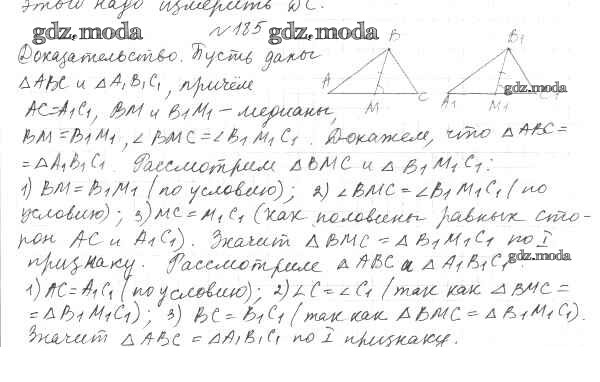 этого надо измерить DC.
№185
gdz.moda gdz.moda
Доказательство. Пусть даны
△ABC и △A1B1C1, причём
AC=A1C1, BM и B1M1 - медианы,
BM=B1M1, ∠BMC=∠B1M1C1. Докажем, что △ABC=
=△A1B1C1. Рассмотрим △BMC и △B1M1C1:
1) BM=B1M1 (по условию); 2) ∠BMC=∠B1M1C1 (по
условию); 3) MC=M1C1 (как половины равных сто-
рон AC и A1C1). Значит △BMC=△B1M1C1 по I
признаку. Рассмотрим △ABC и △A1B1C1
1) AC=A1C1 (по условию); 2) ∠C=∠C1 (так как △BMC=
=△B1M1C1); 3) BC=B1C1 (так как △BMC=△B1M1C1).
Значит △ABC=△A1B1C1 по I признаку.
B
A
M
C
B1
A1
M1
C
gdz.moda
gdz.moda